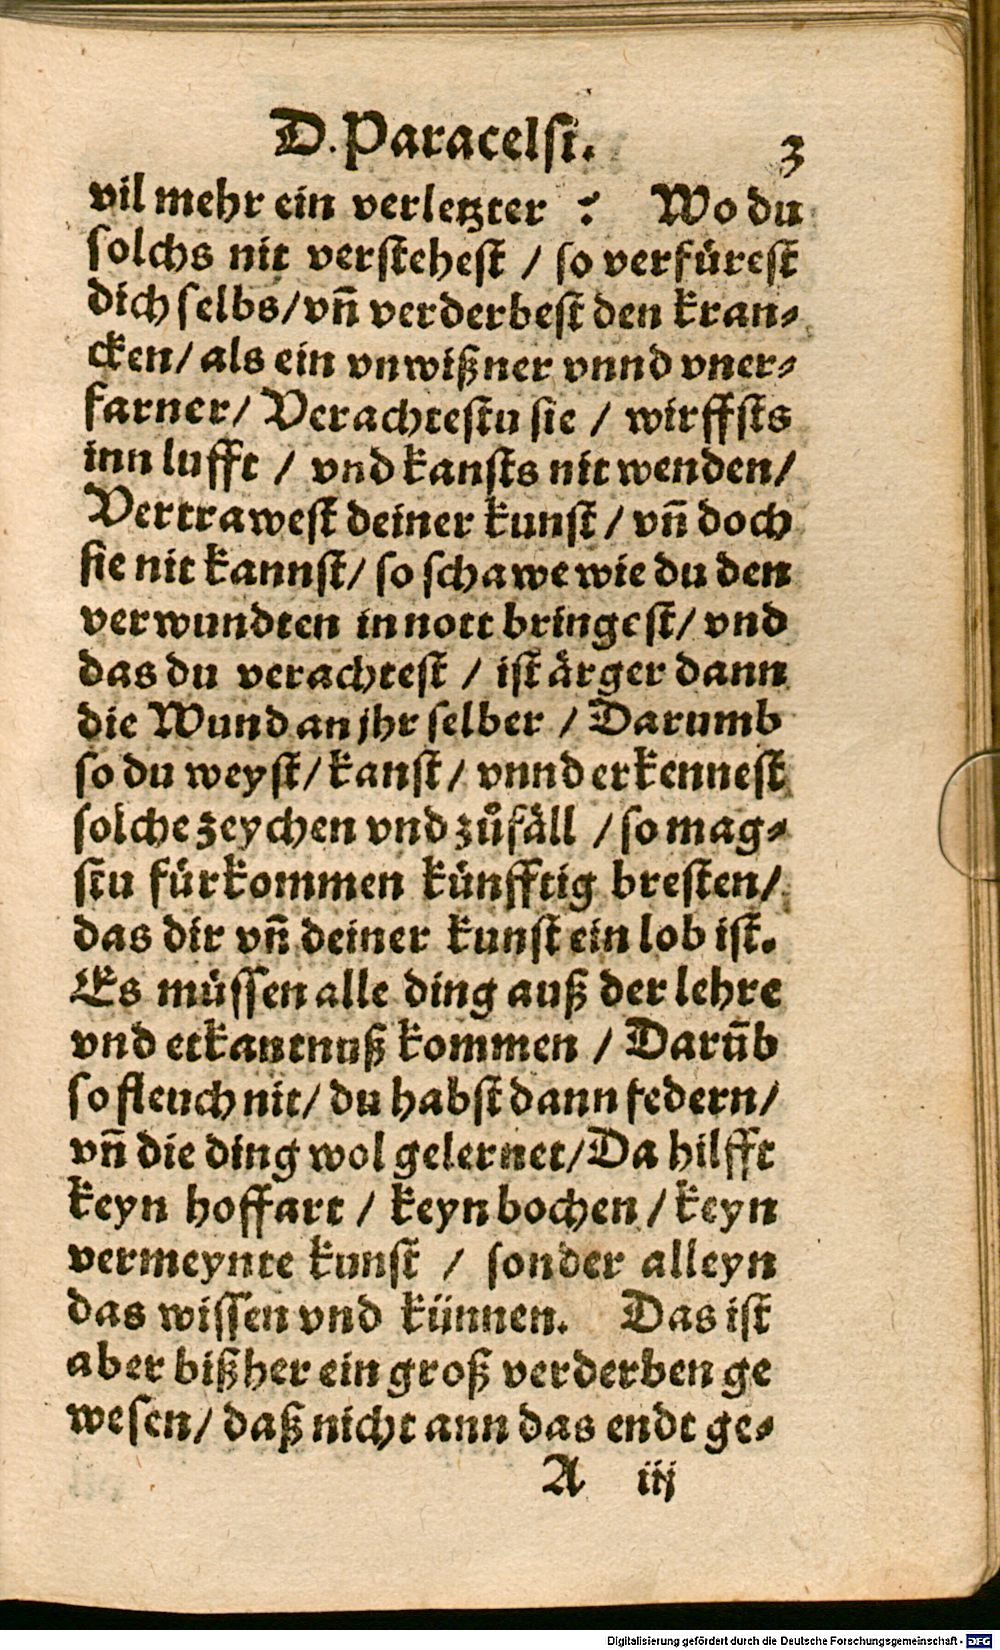 D. Paracelsi. 3
vil mehr ein verletzter ? Wo du
solchs nit verstehest / so verfürest
dich selbs/ vñ verderbest den kran-
cken/ als ein vnwißner vnnd vner-
farner/ Verachtestu sie / wirffsts
inn lufft / vnd kansts nit wenden/
Vertrawest deiner kunst / vñ doch
sie nit kannst/ so schawe wie du den
verwundten in nott bringest/ vnd
das du verachtest / ist ärger dann
die Wund an jhr selber / Darumb
so du weyst/ kanst/ vnnd erkennest
solche zeychen vnd zůfäll / so mag-
stu fürkommen künfftig bresten/
das dir vñ deiner kunst ein lob ist.
Es müssen alle ding auß der lehre
vnd erkantnuß kommen / Darũb
so fleuch nit/ du habst dann federn/
vñ die ding wol gelernet/ Da hilfft
keyn hoffart / keyn bochen / keyn
vermeynte kunst / sonder alleyn
das wissen vnd künnen. Das ist
aber bißher ein groß verderben ge
wesen/ daß nicht ann das endt ge-
A iij
Digitalisierung gefördert durch die Deutsche Forschungsgemeinschaft - DFG